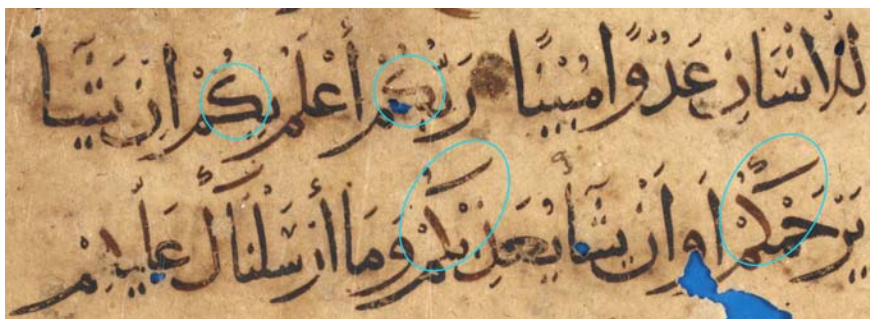 لِلْاِنْسَانِ عَدُوًّا مُبِيْنًا رَبُّكُمْ أَعْلَمُ بِكُمْ اِنْ يَشَأْ
يَرْحَمْكُمْ اَوْ اِنْ يَشَأْ يُعَذِّبْكُمْ وَمَا أَرْسَلْنَاكَ عَلَيْهِمْ